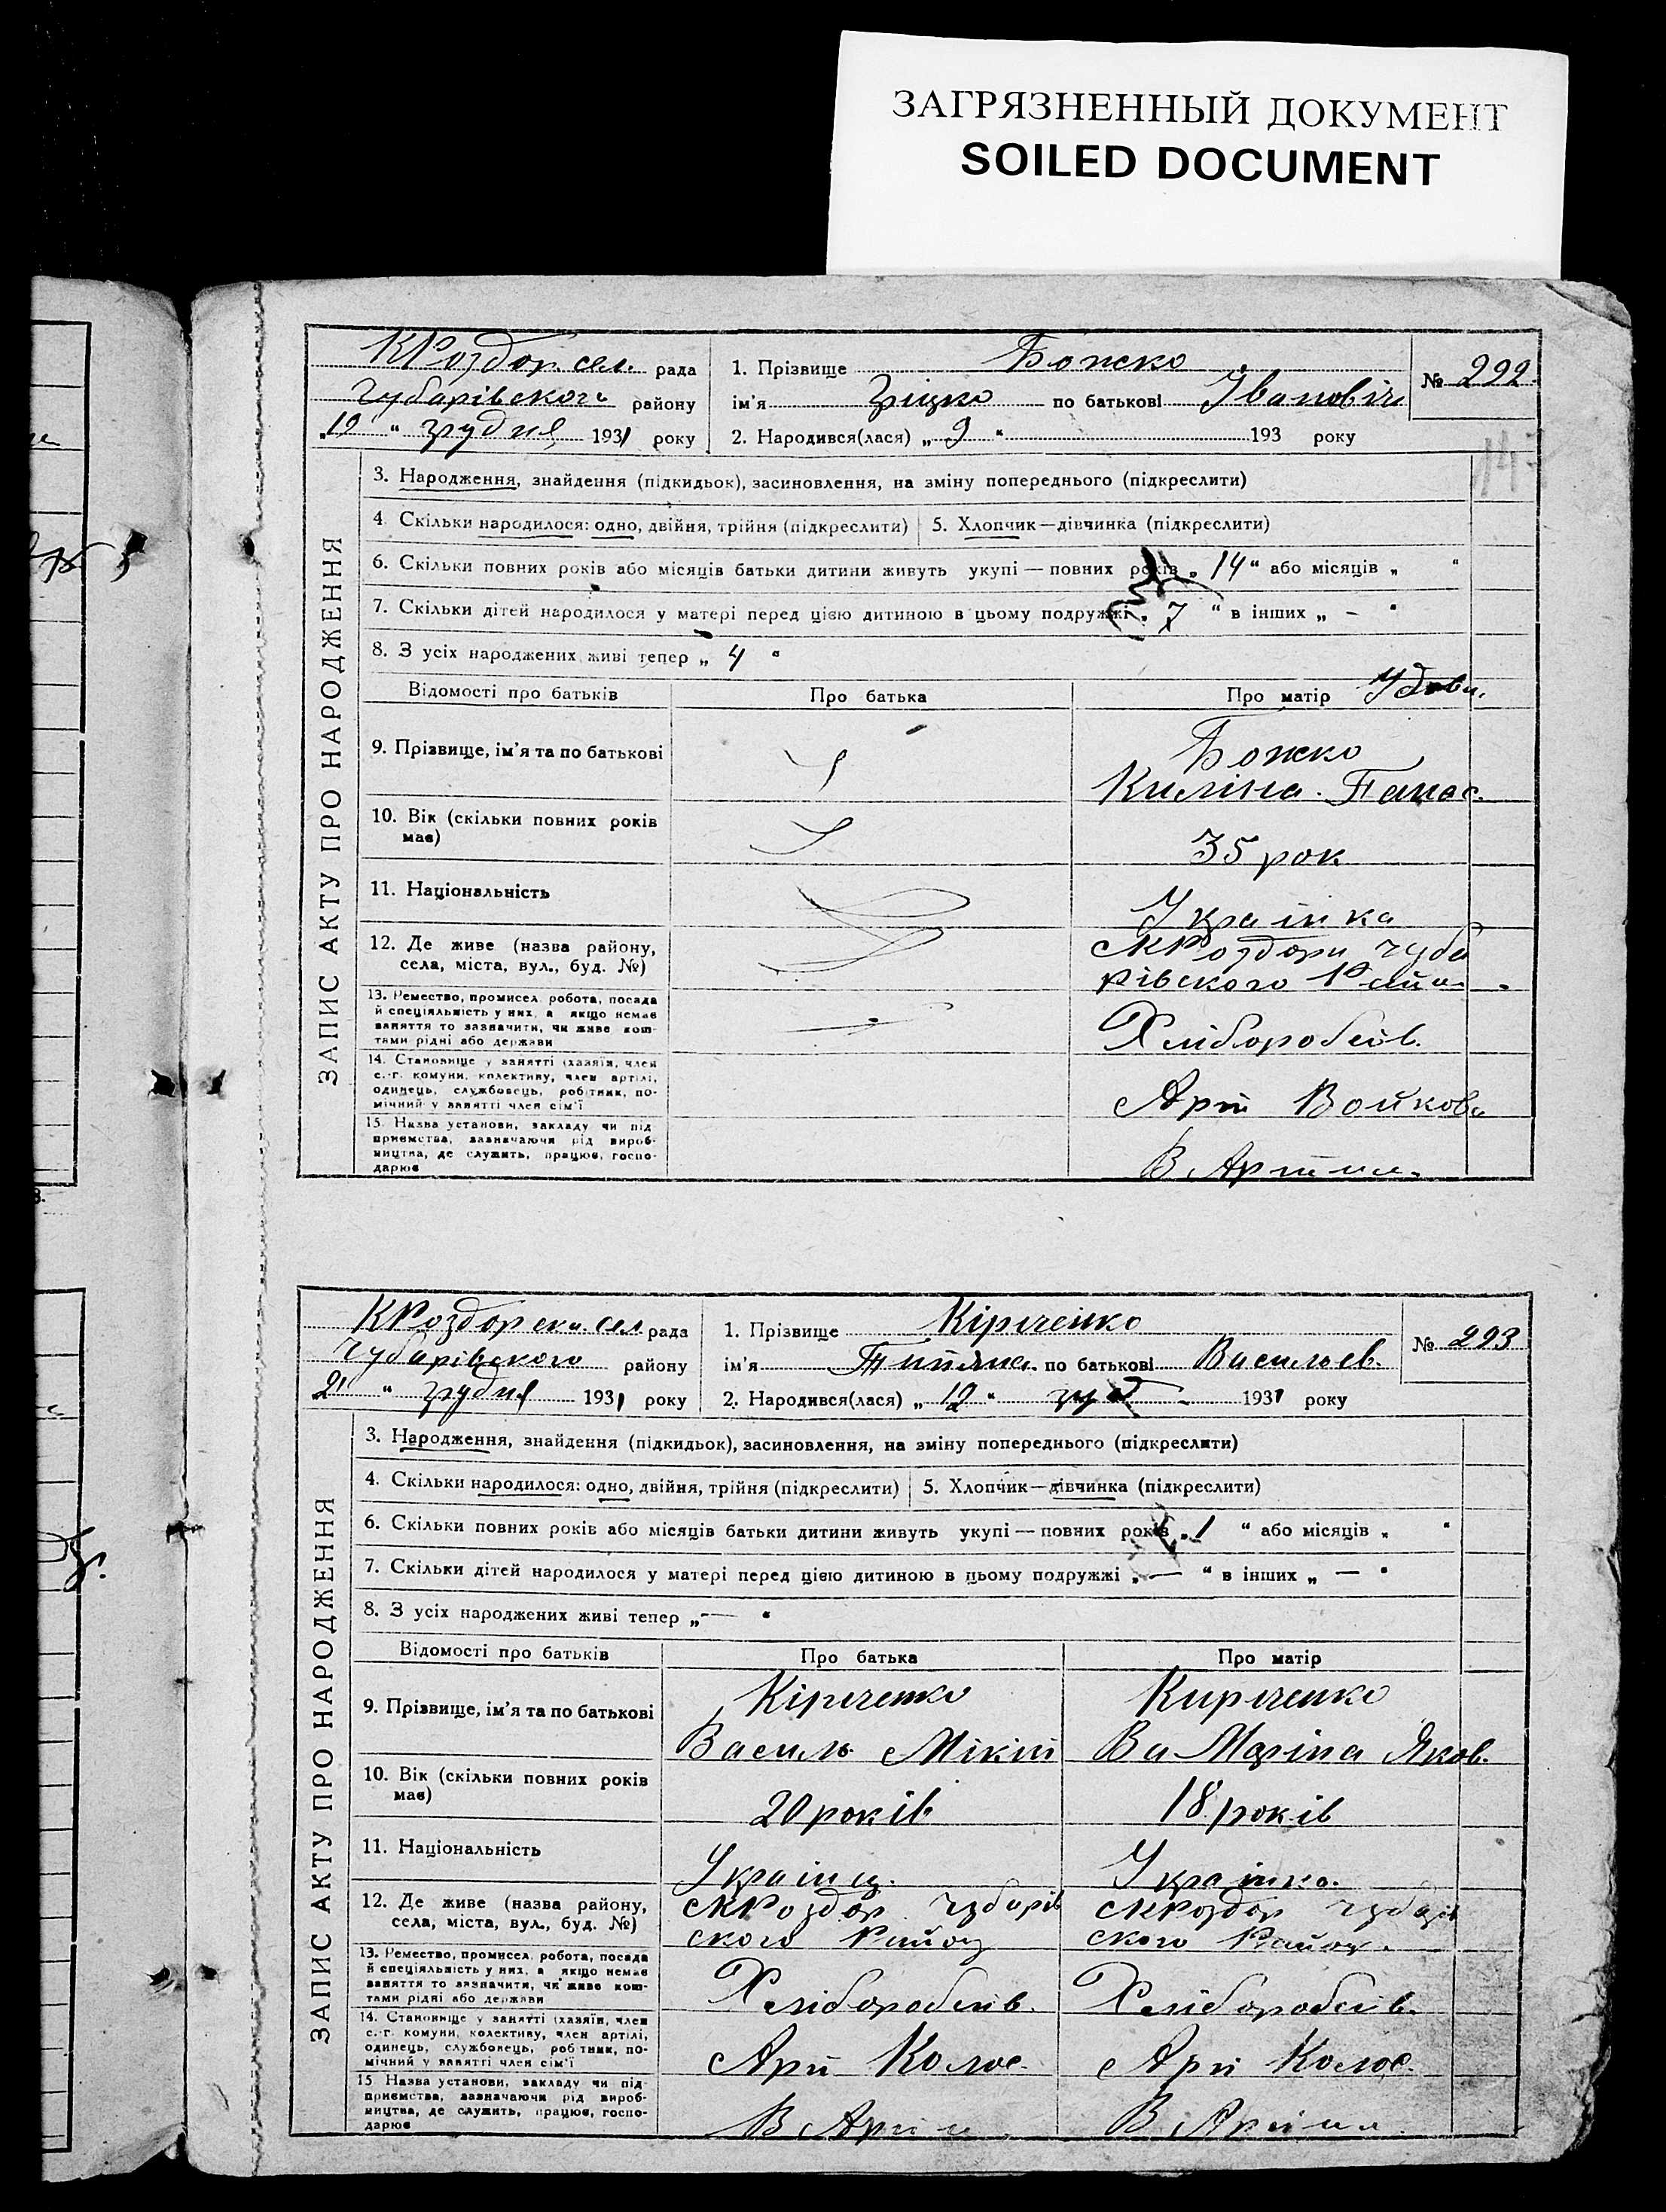 ЗАГРЯЗНЕННЫЙ ДОКУМЕНТ
SOILED DOCUMENT
КРоздор сел. рада
Чубарівского району
„19“ грудня 1931 року
1. Прізвище Божко
№ 292
ім'я Гріцко по батькові Іванович
2. Народився(лася) „9“ 193 року
ЗАПИС АКТУ ПРО НАРОДЖЕННЯ
3. Народження, знайдення (підкидьок), засиновлення, на зміну попереднього (підкреслити)
4. Скільки народилося: одно, двійня, трійня (підкреслити) 5. Хлопчик—дівчинка (підкреслити)
6. Скільки повних років або місяців батьки дитини живуть укупі — повних років „14“ або місяців „ “
7. Скільки дітей народилося у матері перед цією дитиною в цьому подружжі „7“ в інших „ – “
8. З усіх народжених живі тепер „4“
Відомості про батьків Про батька Про матір Удови.
9. Прізвище, ім'я та по батькові Божко
Килина. Панас.
10. Вік (скільки повних років має) 35 рок
11. Національність Украінка
12. Де живе (назва району, села, міста, вул., буд. №) Роздори Чуба
рівского Райо
13. Ремество, промисел, робота, посада й спеціяльність у них, а якщо немає заняття то зазначити, чи живе коштами рідні або держави Хлібороб
14. Становище у занятті (хазяїн, член с.-г. комуни, колективу, член артілі, одинець, службовець, робітник, помічний у занятті член сім'ї Арт Войкова
15. Назва установи, закладу чи підприємства, зазначаючи рід виробництва, де служить, працює, господарює В Артили
КРоздорск. сел. рада
Чубарівского району
21 “ грудня 1931 року
1. Прізвище Кіриченко
№ 293
ім'я по батькові Васильев.
2. Народився(лася) „12“ груд 1931 року
ЗАПИС АКТУ ПРО НАРОДЖЕННЯ
3. Народження, знайдення (підкидьок), засиновлення, на зміну попереднього (підкреслити)
4. Скільки народилося: одно, двійня, трійня (підкреслити) 5. Хлопчик—дівчинка (підкреслити)
6. Скільки повних років або місяців батьки дитини живуть укупі — повних років „1 “ або місяців „ “
7. Скільки дітей народилося у матері перед цією дитиною в цьому подружжі „ — “ в інших „ — “
8. З усіх народжених живі тепер „ — “
Відомості про батьків Про батька Про матір
9. Прізвище, ім'я та по батькові Кіриченко Кириченко
Василь Мікит Марина Яков.
10. Вік (скільки повних років має) 20 років 18 років
11. Національність Украінц. Украінка.
12. Де живе (назва району, села, міста, вул., буд. №) Роздор Чубарів Роздор Чубарів
ского Району ского Району.
13. Ремество, промисел, робота, посада й спеціяльність у них, а якщо немає заняття то зазначити, чи живе коштами рідні або держави Хлібороб Хлібороб
14. Становище у занятті (хазяїн, член с.-г. комуни, колективу, член артілі, одинець, службовець, робітник, помічний у занятті член сім'ї Арт Колос. Арт Колос.
15 Назва установи, закладу чи підприємства, зазначаючи рід виробництва, де служить, працює, господарює В Артил В Артил